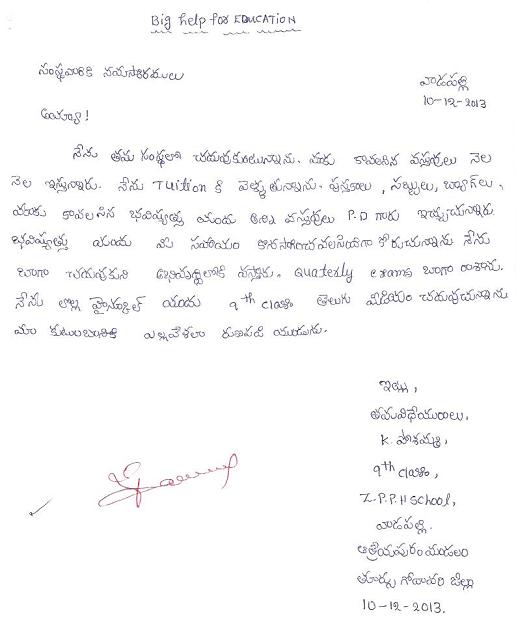 Big help for EDUCATION
సంస్థవారికి నమస్కారములు
వాడపల్లి
10-12-2013
అయ్యా!
నేను తమ సంస్థలో చదువుకుంటున్నాను. మాకు కావలసిన వస్తువులు నెల
నెల ఇస్తున్నారు. నేను Tuition కి వెళ్ళుతున్నాను. పుస్తకాలు, సబ్బులు, బ్యాగ్‌లు,
మాకు కావలసిన భవిష్యత్తు యందు అన్ని వస్తువులు P.D గారు ఇచ్చుచున్నారు
భవిష్యత్తు యందు మీ సహాయం కొనసాగించవలసినదిగా కోరుచున్నాను నేను
బాగా చదువుకుని అభివృద్ధిలోకి వస్తాను. Quaterly exams బాగా రాశాను.
నేను లొల్ల హైస్కూల్ యందు 9th క్లాసు తెలుగు మీడియం చదువుచున్నాను
మా కుటుంబానికి ఎల్లవేళలా రుణపడి యుండును.
ఇట్లు,
తమవిధేయురాలు,
K. పోశమ్మ,
9th క్లాసు,
Z.P.P.H School,
వాడపల్లి.
ఆత్రేయపురంమండలం
తూర్పు గోదావరి జిల్లా
10-12-2013.